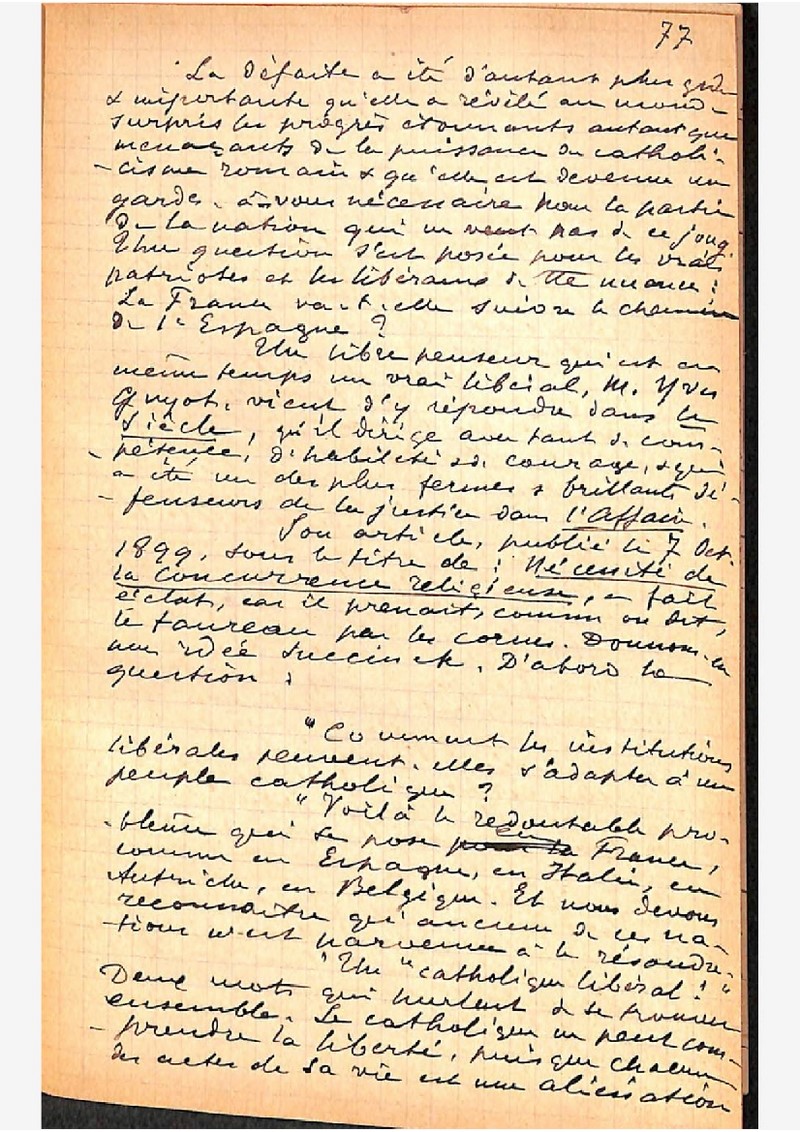 77
La défaite a été d'autant plus grde
& importante qu'elle a révélé au monde
surpris les progrès étonnants autant que
menaçants de la puissance du catholi-
-cisme romain & qu'elle est devenue un
garde-à-vous nécessaire pour la partie
de la nation qui ne veut pas de ce joug.
Une question s'est posée pour les vrais
patriotes et les libéraux de tte nuance :
La France va-t-elle suivre le chemin
de l'Espagne ?
Un libre penseur qui est en
même temps un vrai libéral, M. Yves
Guyot, vient d'y répondre dans le
Siècle, qu'il dirige avec tant de com-
-pétence, d'habileté & de courage, & qui
a été un des plus fermes & brillants dé-
-fenseurs de la justice dans l'Affaire.
Son article, publié le 7 Oct.
1899, sous le titre de : Nécessité de
la Concurrence religieuse, a fait
éclat, car il prenait, comme on dit,
le taureau par les cornes. Donnons-en
une idée succincte. D'abord la
question :
"Comment les institutions
libérales peuvent-elles s'adapter à un
peuple catholique ?
"Voilà le redoutable pro-
-blème qui se pose pour la en France,
comme en Espagne, en Italie, en
Autriche, en Belgique. Et nous devons
reconnaître qu'aucune de ces na-
-tions n'est parvenue à le résoudre.
"Un "catholique libéral!"
Deux mots qui hurlent de se trouver
ensemble. Le catholique ne peut com-
-prendre la liberté, puisque chacun
des actes de sa vie est une aliénation